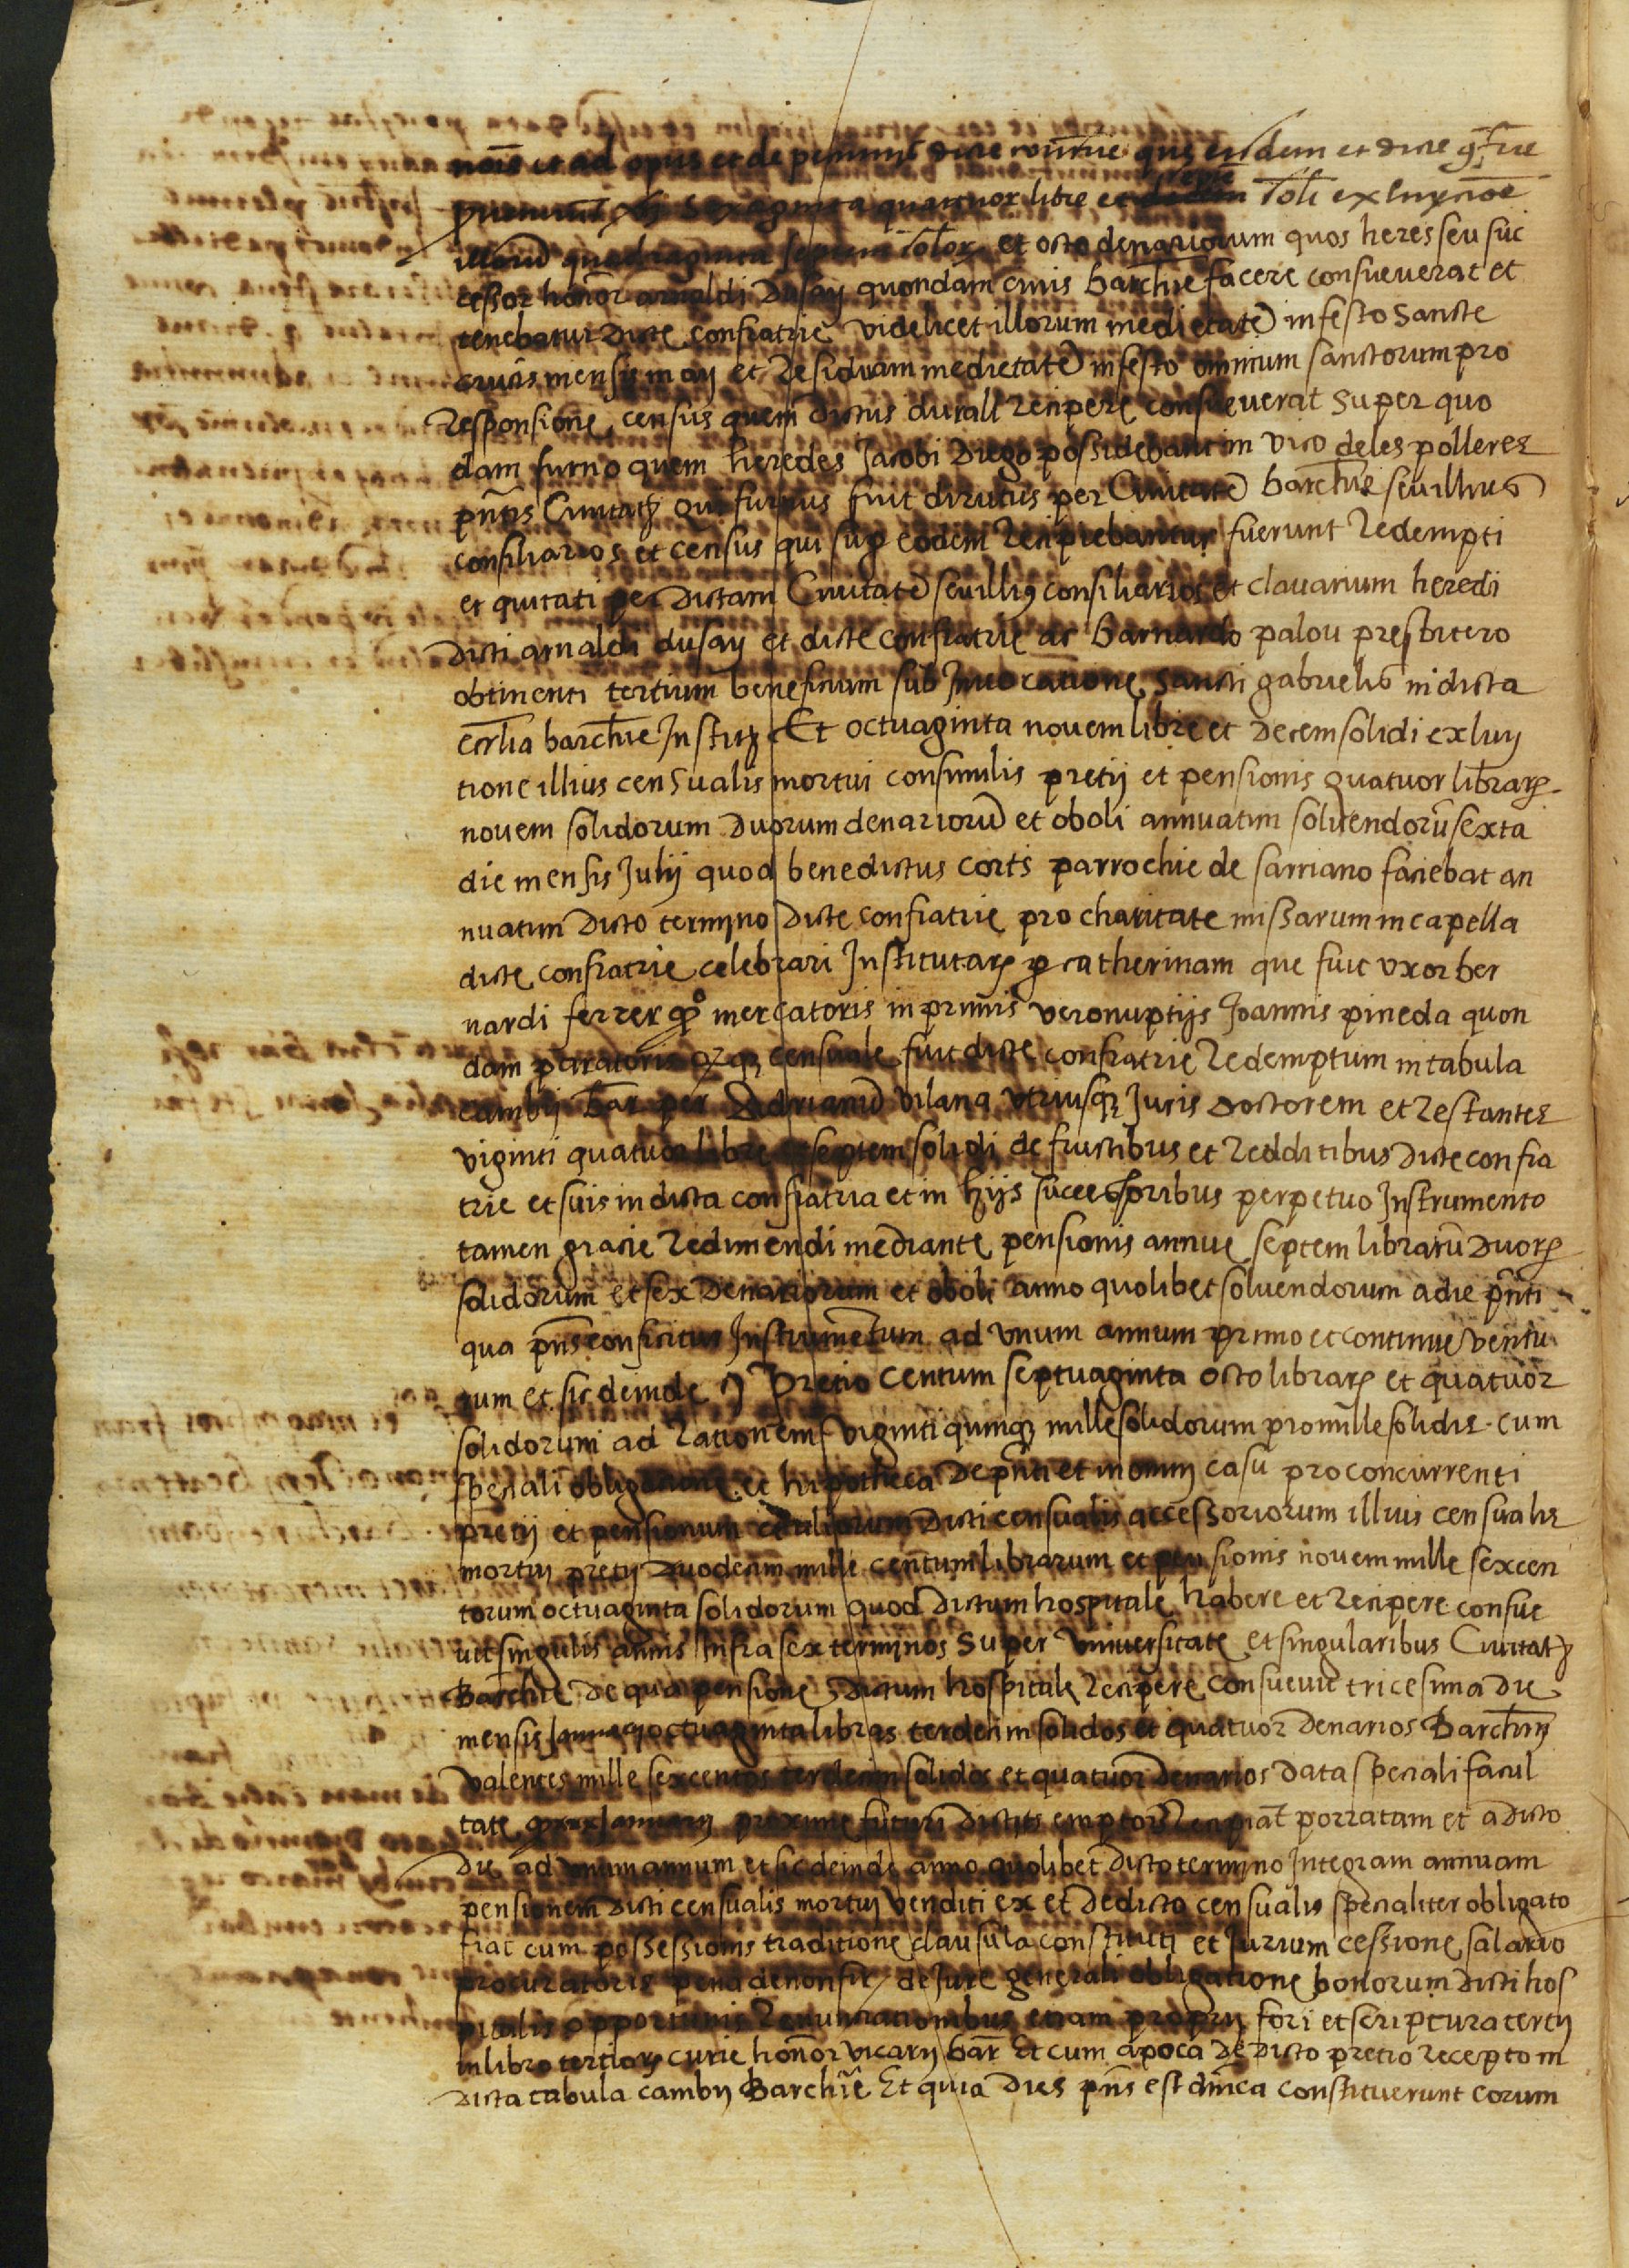 nois et ad opus et de pecunijs dicte que eidem et dicte
sexaginta quatuor libre et soli ex luycione
illorum quadraginta septem solidor et octo denariorum quos heres seu suc
cessor honor arnaldi dusay quondam civis barchne facere consueverat et
tenebatur dicte confratrie videlicet illorum medietate in festo sancte
crucis mensis maij et residuam medietate in festo omnium sanctorum pro
responsione census quem dictus durall recipere consueverat super quo
dam furno quem heredes Jacobi Diego possidebant in vico de les polleres
pntis Civitatis qui furnus fuit dirutus per Civitate barchne seu illius
consiliarios et census qui sup eodem recipiebantur fuerunt redempti
et quitati per dictam Civitate seu illius consiliarios et clavarium heredi
dicti arnaldi dusay et dicte confratrie ac barnardo palou presbitero
obtinenti tertium beneficium sub Invocatione sancti gabrielis in dicta
ecclia barchne Institutum Et octuaginta novem libre et decem solidi ex luy
tione illius censualis mortui consimilis pretij et pensionis quatuor librar
novem solidorum duorum denariorum et oboli annuatim solvendorum sexta
die mensis Julij quod benedictus corts parrochie de sarriano faciebat an
nuatim dicto termino dicte confratrie pro charitate missarum in capella
dicte confratrie celebrari Institutar per catherinam que fuit uxor ber
nardi ferrer qo mercatoris in primis vero nuptijs Joannis pineda quon
dam paratoris censuale fuit dicte confratrie redemptum in tabula
cambij bar per Adrianum vilana utriusque Juris doctorem et restantes
viginti quatuor libre et septem solidi de fructibus et redditibus dicte confra
trie et suis in dicta confratria et in hijs successoribus perpetuo Instrumento
tamen gracie redimendi mediante pensionis annue septem librarum duor
solidorum et sex denariorum et oboli anno quolibet solvendorum a die pnti
qua pns conficitur Instrumentum ad unum annum primo et continue ventu
rum et sic deinde Pretio centum septuaginta octo librar et quatuor
solidorum ad rationem viginti quinque mille solidorum pro mille solidis cum
speciali obligatione et hipotheca de pnti et in omni casu pro concurrenti
pretij et pensionum dicti censualis accessoriorum illius censualis
mortui pretij duodecim mille centum librarum et pensionis novem mille sexcen
torum octuaginta solidorum quod dictum hospitale habere et recipere consue
vit singulis annis Infra sex terminos super universitate et singularibus Civitatis
Barchne de qua pensione dictum hospitale recipere consuevit tricesima die
mensis Januarij octuaginta libras terdecim solidos et quatuor denarios Barchne
valentes mille sexcentos terdecim solidos et quatuor denarios data speciali facul
tate Januarij proxime futuri dictus emptor recipiat porratam et a dicto
die ad unum annum et sic deinde anno quolibet dicto termino Integram annuam
pensionem dicti censualis mortui venditi ex et de dicto censualis specialiter obligato
fiat cum possessionis traditione clausula constituti et Jurium cessione salario
procuratoris pena de non fir de Jure generali obligatione bonorum dicti hos
pitalis opportunis renunciationibus etiam proprij fori et scriptura tertij
in libro tertiorum curie honor vicarij bar Et cum apoca de dicto pretio recepto in
dicta tabula cambij Barchne Et quia dies pns est dnica constituerunt eorum